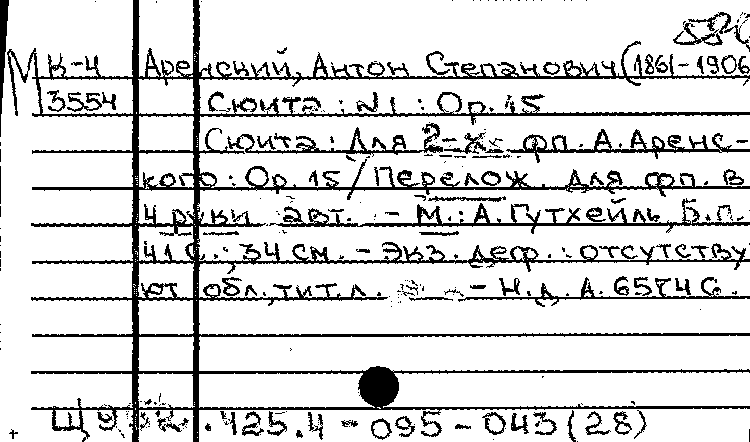 М К-4 Аренский, Антон Степанович (1861-1906
3554 Сюита : №1 : Ор. 15
Сюита : Для 2-х фп. А. Аренс-
кого : Ор. 15 / Перелож. для фп. в
4 руки авт. - М. : А. Гутхейль, Б.г.
41 с. ; 34 см. - Экз. деф. : отсутству
ют обл., тит. л. - Н.д. А. 6574 G.
.425.4 - 095 - 043 (28)